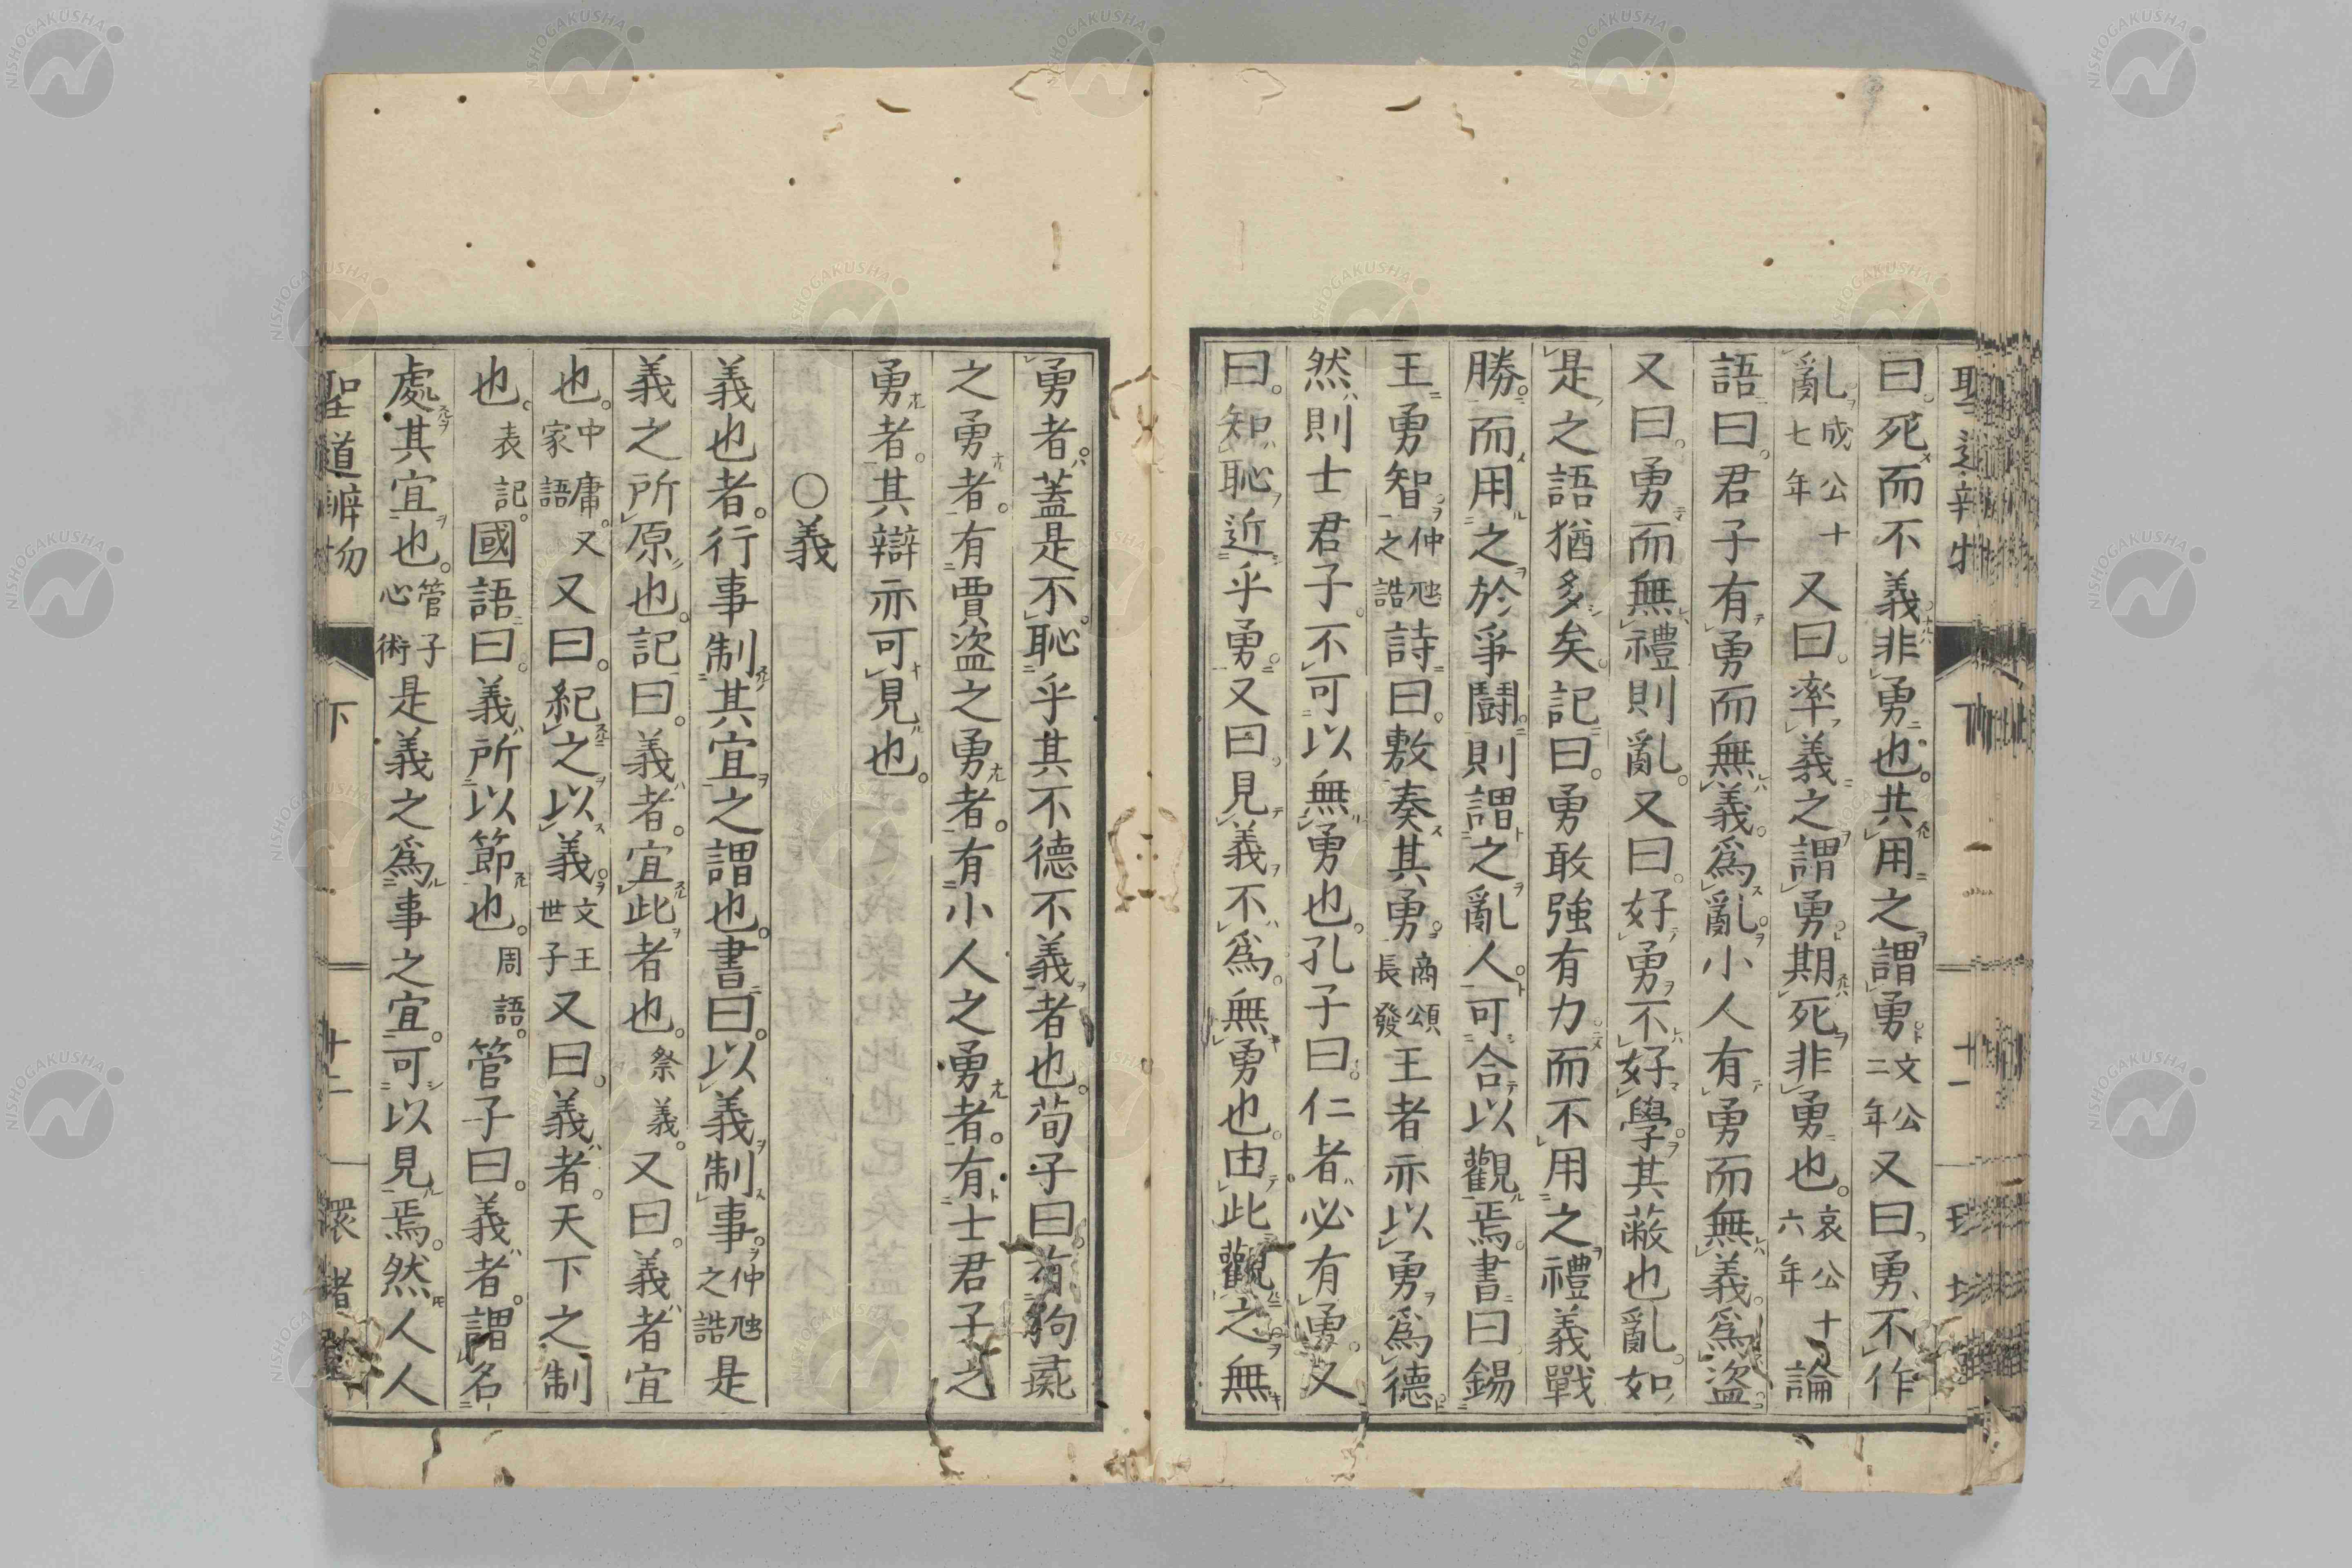 曰。死而不義非勇也。共用之謂勇。文公二年又曰。勇不作
亂。成公十七年又曰。率義之謂勇。期死非勇也。哀公十六年論
語曰。君子有勇而無義。爲亂。小人有勇而無義。爲盜。
又曰。勇而無禮則亂。又曰。好勇不好學。其蔽也亂。如
是之語猶多矣。記曰。勇敢強有力。而不用之禮義戰
勝。而用之於爭鬪。則謂之亂人。可合以觀焉。書曰錫
王勇智。仲虺之誥詩曰。敷奏其勇。商頌長發王者亦以勇爲德。
然則士君子。不可以無勇也。孔子曰。仁者必有勇。又
曰。知恥近乎勇。又曰。見義不爲。無勇也。由此觀之。無
勇者。蓋是不恥乎其不德不義者也。荀子曰。有狗彘
之勇者。有賈盜之勇者。有小人之勇者。有士君子之
勇者。其辯亦可見也。
○義
義也者。行事制其宜之謂也。書曰。以義制事。仲虺之誥是
義之所原也。記曰。義者。宜此者也。祭義。又曰。義者宜
也。中庸。又家語又曰。紀之以義。文王世子又曰。義者。天下之制
也。表記。國語曰。義所以節也。周語。管子曰。義者。謂各
處其宜也。管子心術是義之爲事之宜。可以見焉。然人人
聖道辨物 下 十二 環堵